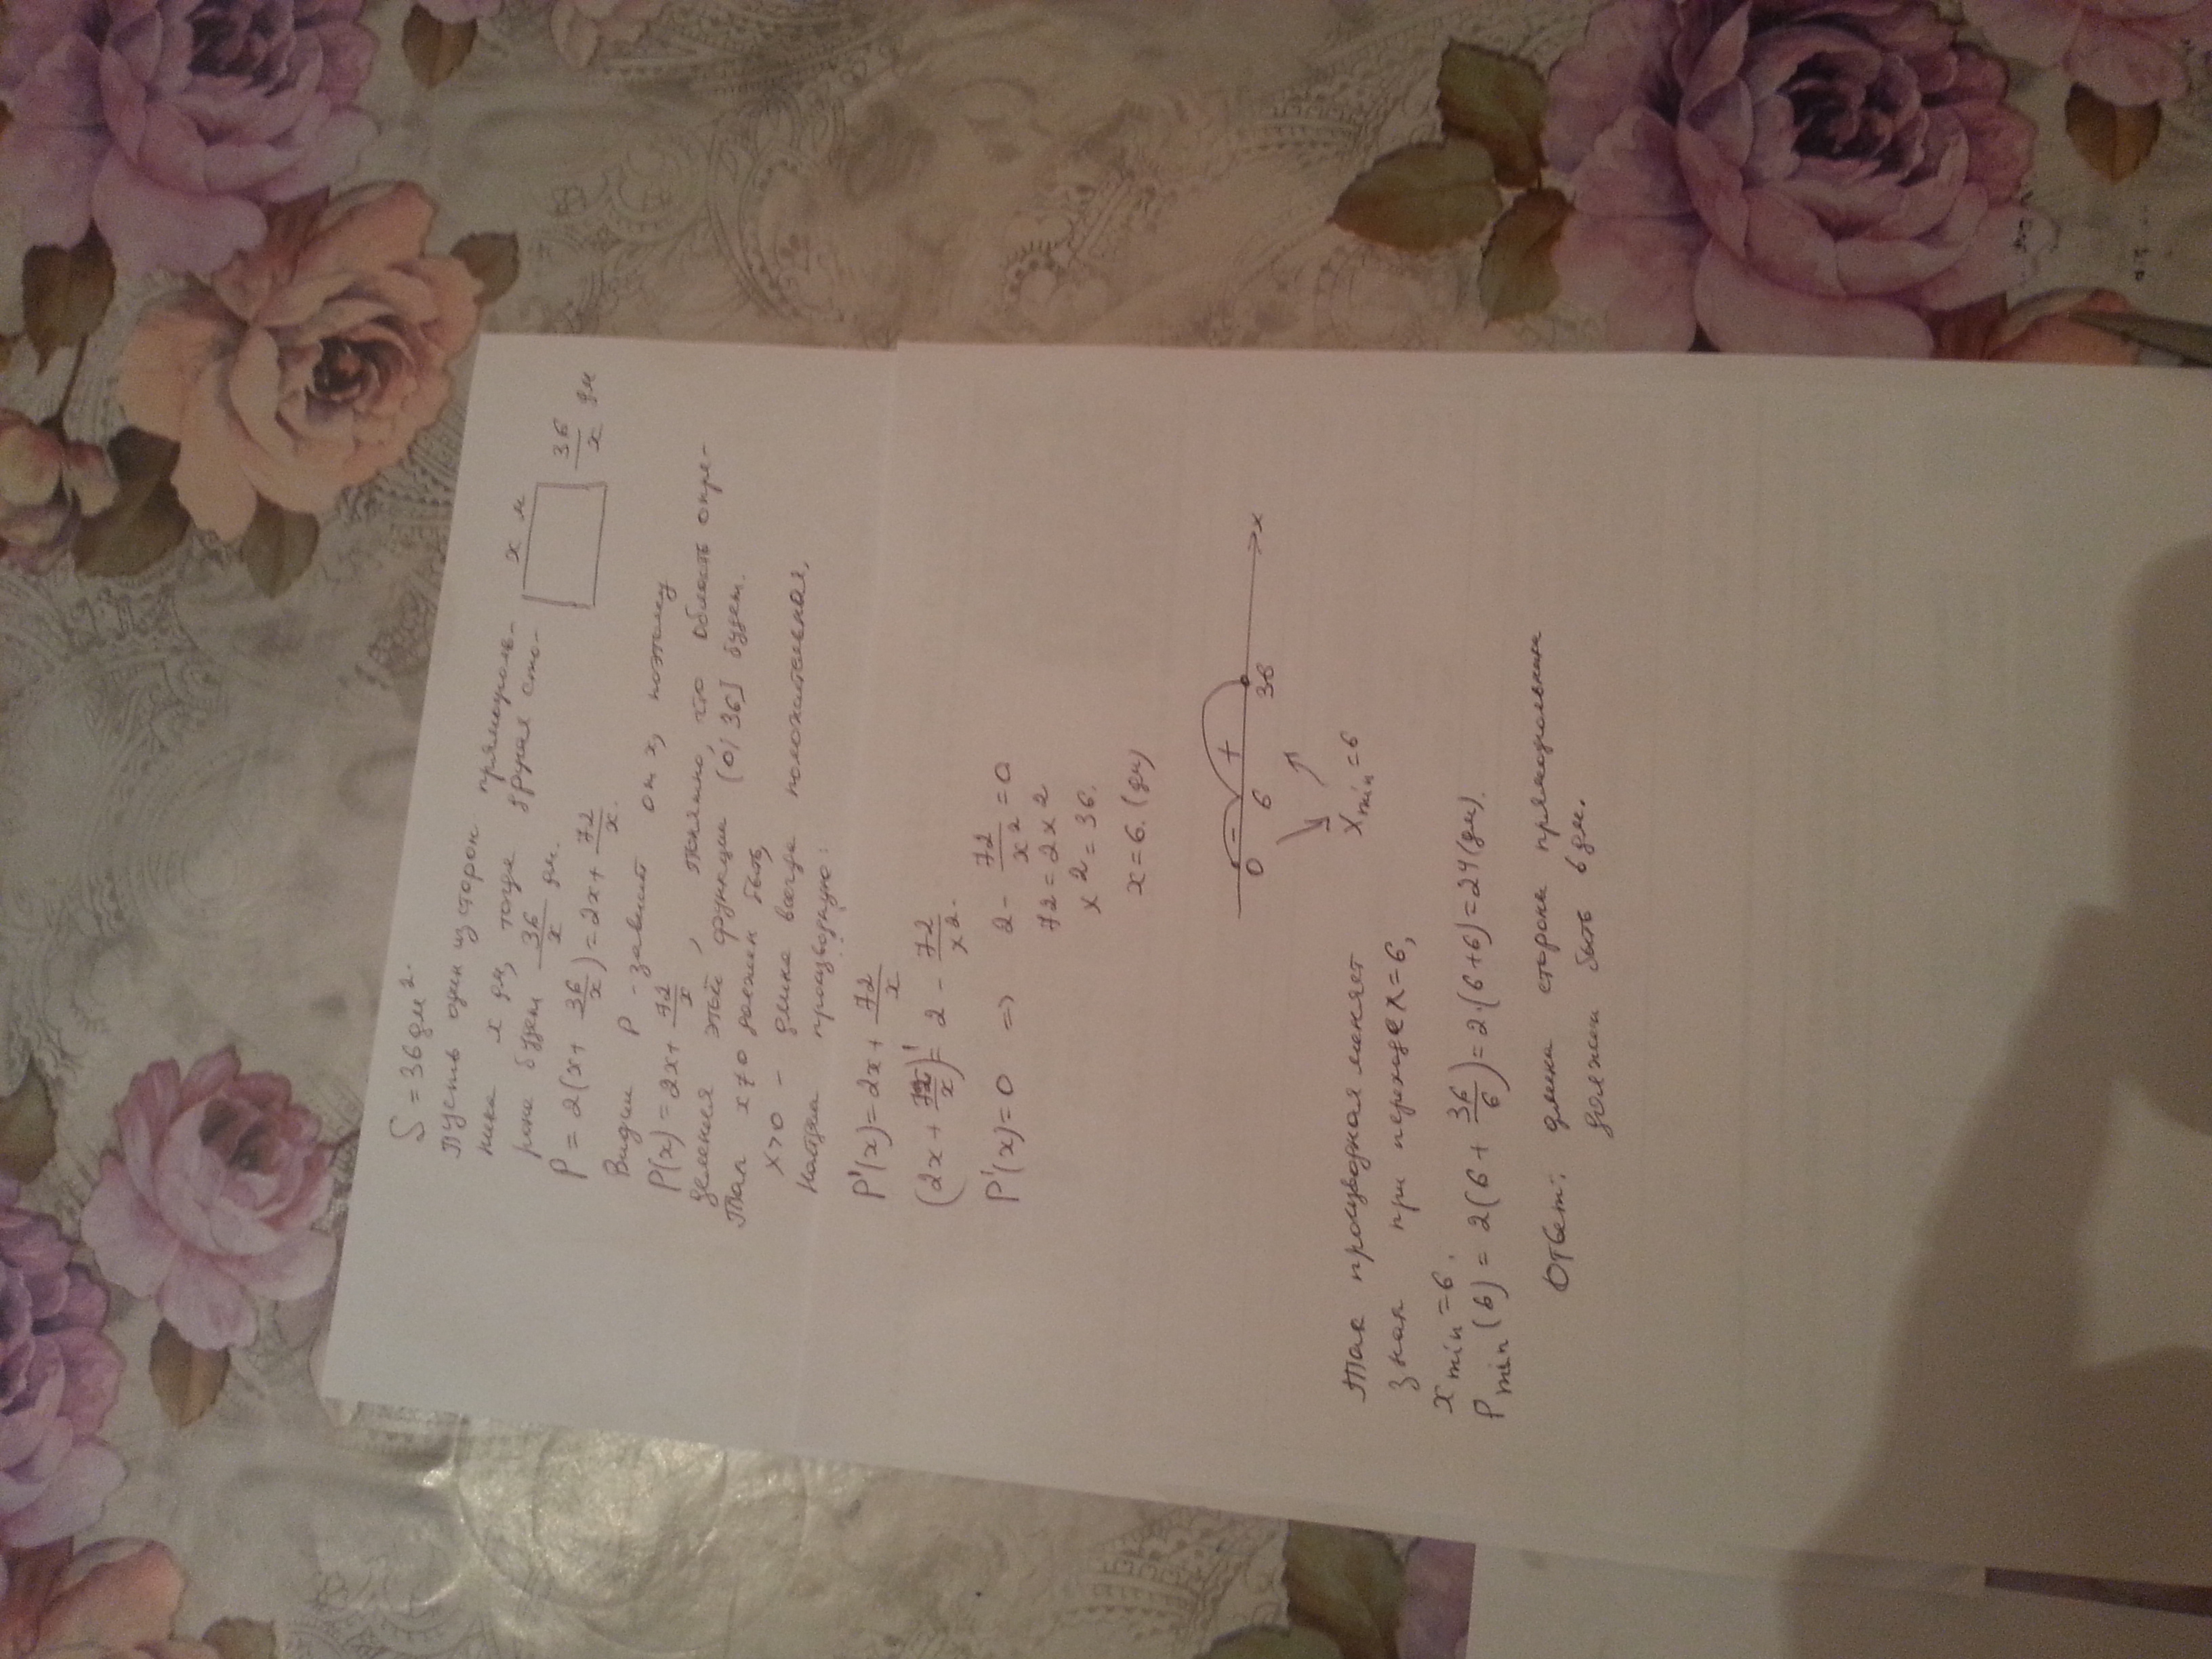 S = 36 дм².
Пусть один из сторон прямоуголь-
ника x дм, тогда другая сто-
рона будет 36/x дм.
x м
36/x дм
P = 2(x + 36/x) = 2x + 72/x.
Видим P - зависит от x, поэтому
P(x) = 2x + 72/x, понятно, что область опре-
деления этой функции (0; 36] будет.
Так x≠0 должен быть,
x>0 - длина всегда положительная,
Найдём производную:
P'(x) = 2x + 72/x
(2x + 72/x)' = 2 - 72/x².
P'(x) = 0 => 2 - 72/x² = 0
72 = 2x²
x² = 36.
x = 6. (дм)
0 - 6 + 36 x
x min = 6
Так производная меняет
знак при переходе x = 6,
x min = 6.
P min (6) = 2(6 + 36/6) = 2·(6+6) = 24 (дм).
Ответ: длина стороны прямоугольника
должен быть 6 дм.